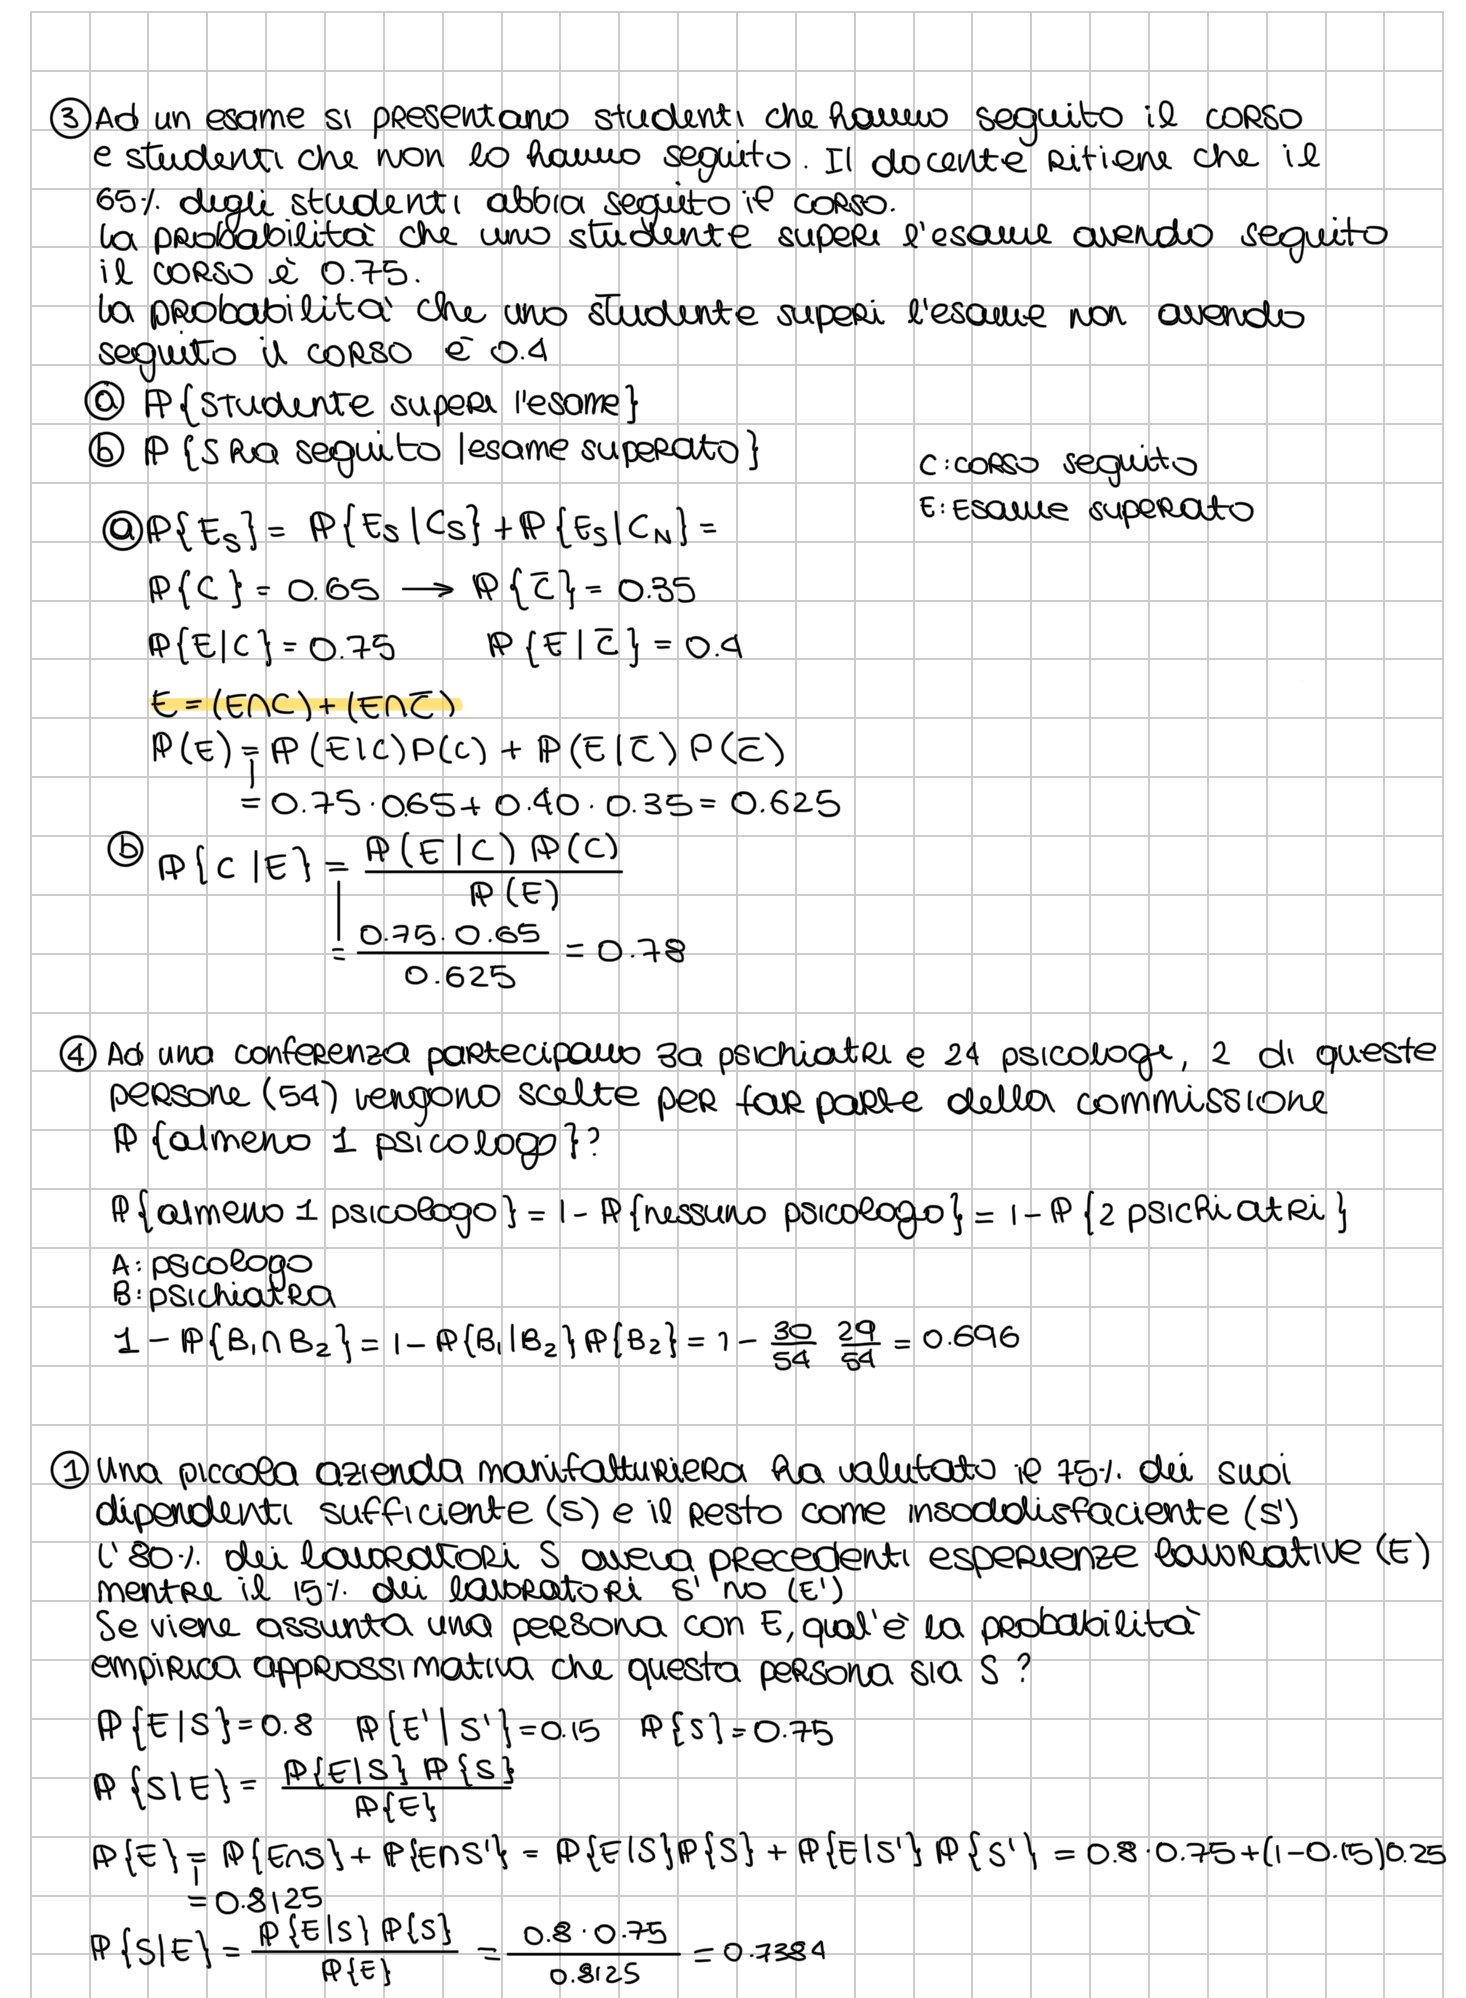 ③ Ad un esame si presentano studenti che hanno seguito il corso
e studenti che non lo hanno seguito. Il docente ritiene che il
65% degli studenti abbia seguito il corso.
La probabilità che uno studente superi l'esame avendo seguito
il corso è 0.75.
La probabilità che uno studente superi l'esame non avendo
seguito il corso è 0.4
ⓐ ℙ{studente superi l'esame}
ⓑ ℙ{S ha seguito | esame superato}
C: corso seguito
E: Esame superato
ⓐ ℙ{E_S} = ℙ{E_S | C_S} + ℙ{E_S | C_N} =
ℙ{C} = 0.65 → ℙ{C̄} = 0.35
ℙ{E|C} = 0.75 ℙ{E|C̄} = 0.4
E = (E∩C) + (E∩C̄)
ℙ(E) = ℙ(E|C)P(C) + ℙ(E|C̄) P(C̄)
= 0.75 · 0.65 + 0.40 · 0.35 = 0.625
ⓑ ℙ{C|E} = ℙ(E|C) ℙ(C) / ℙ(E)
= 0.75 · 0.65 / 0.625 = 0.78
④ Ad una conferenza partecipano 30 psichiatri e 24 psicologi, 2 di queste
persone (54) vengono scelte per far parte della commissione
ℙ{almeno 1 psicologo}?
ℙ{almeno 1 psicologo} = 1 - ℙ{nessuno psicologo} = 1 - ℙ{2 psichiatri}
A: pscologo
B: psichiatra
1 - ℙ{B₁∩B₂} = 1 - ℙ{B₁|B₂} ℙ{B₂} = 1 - 30/54 29/54 = 0.696
① Una piccola azienda manifatturiera ha valutato il 75% dei suoi
dipendenti sufficiente (S) e il resto come insoddisfaciente (S')
L'80% dei lavoratori S aveva precedenti esperienze lavorative (E)
mentre il 15% dei lavoratori S' no (E')
Se viene assunta una persona con E, qual'è la probabilità
empirica approssimativa che questa persona sia S?
ℙ{E|S} = 0.8 ℙ{E'|S'} = 0.15 ℙ{S} = 0.75
ℙ{S|E} = ℙ{E|S} ℙ{S} / ℙ{E}
ℙ{E} = ℙ{E∩S} + ℙ{E∩S'} = ℙ{E|S}ℙ{S} + ℙ{E|S'} ℙ{S'} = 0.8 · 0.75 + (1 - 0.15) 0.25
= 0.8125
ℙ{S|E} = ℙ{E|S} ℙ{S} / ℙ{E} = 0.8 · 0.75 / 0.8125 = 0.7384